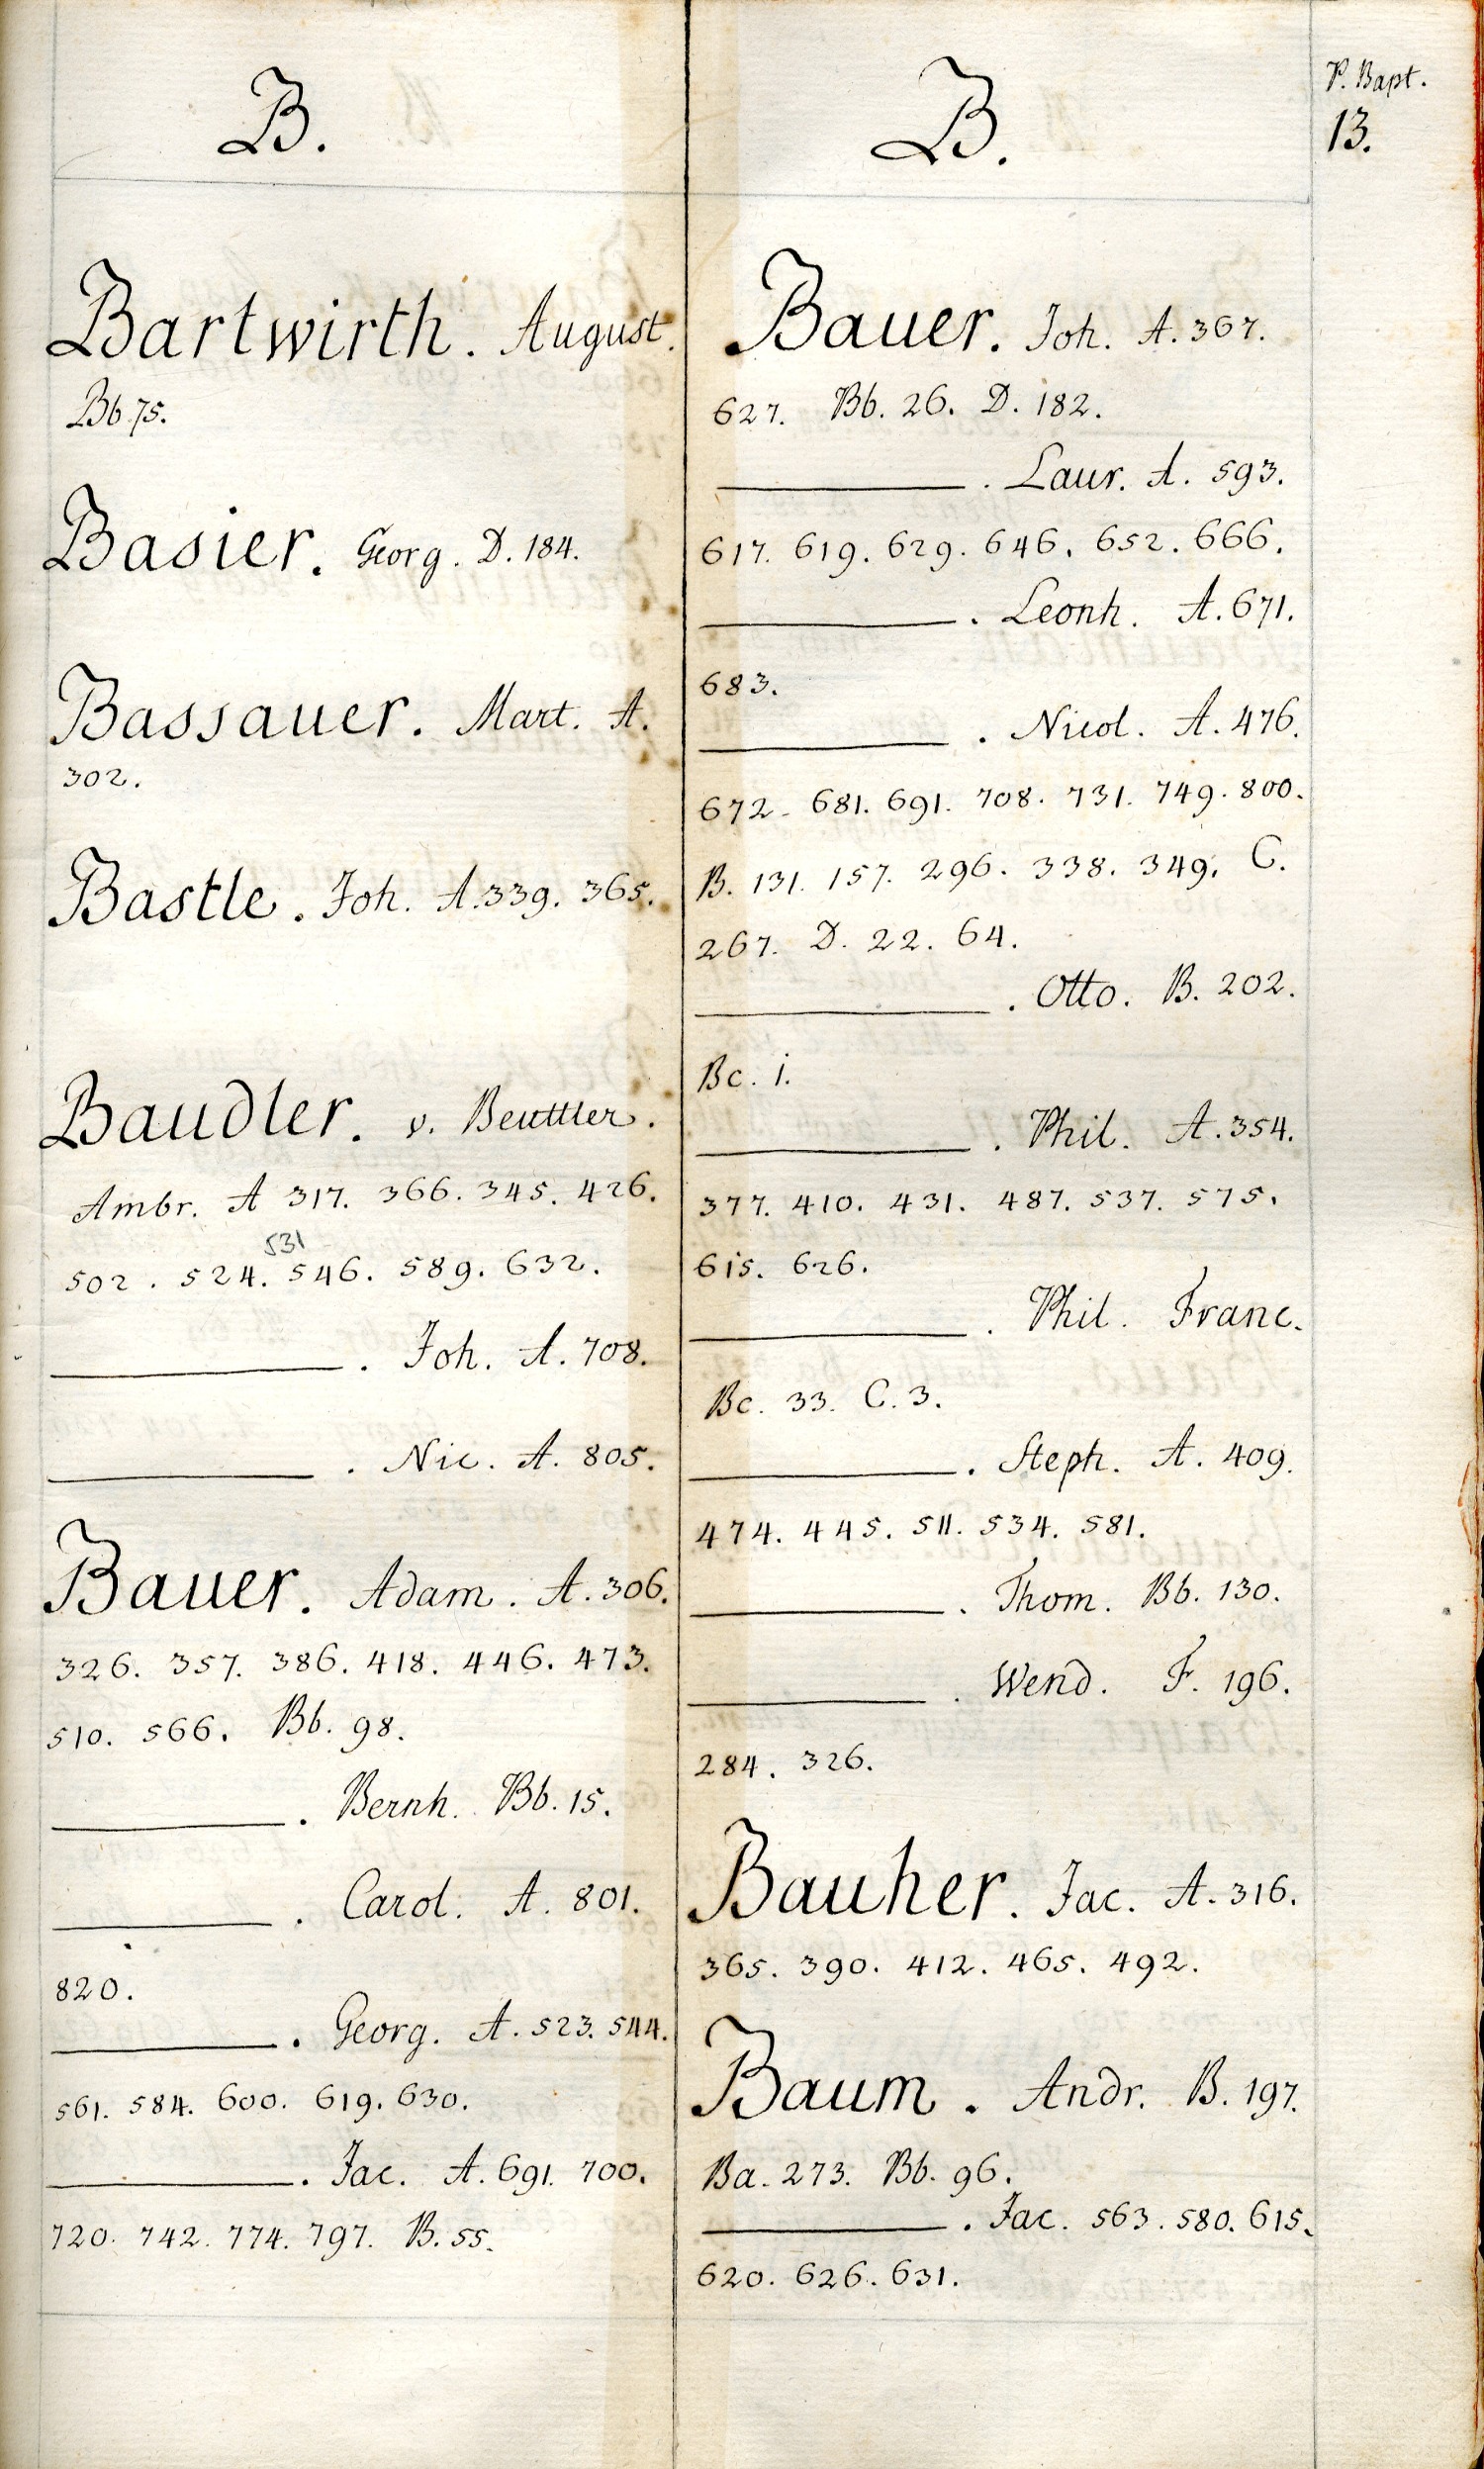 B.
Bartwirth. August.
Bb. 75.
Basier. Georg. D. 184.
Bassauer. Mart. A.
302.
Bastle. Joh. A. 339. 365.
Baudler. v. Beuttler.
Ambr. A 317. 366. 345. 426.
531
502. 524. 546. 589. 632.
———. Joh. A. 708.
———. Nic. A. 805.
Bauer. Adam. A. 306.
326. 357. 386. 418. 446. 473.
510. 566. Bb. 98.
———. Bernh. Bb. 15.
———. Carol. A. 801.
820.
———. Georg. A. 523. 544.
561. 584. 600. 619. 630.
———. Jac. A. 691. 700.
720. 742. 774. 797. B. 55.
B.
Bauer. Joh. A. 367.
627. Bb. 26. D. 182.
———. Laur. A. 593.
617. 619. 629. 646. 652. 666.
———. Leonh. A. 671.
683.
———. Nicol. A. 476.
672. 681. 691. 708. 731. 749. 800.
B. 131. 157. 296. 338. 349. C.
267. D. 22. 64.
———. Otto. B. 202.
Bc. 1.
———. Phil. A. 354.
377. 410. 431. 487. 537. 575.
615. 626.
———. Phil. Franc.
Bc. 33. C. 3.
———. Steph. A. 409.
474. 445. 511. 534. 581.
———. Thom. Bb. 130.
———. Wend. F. 196.
284. 326.
Bauher. Jac. A. 316.
365. 390. 412. 465. 492.
Baum. Andr. B. 197.
Ba. 273. Bb. 96.
———. Jac. 563. 580. 615.
620. 626. 631.
P. Bapt.
13.